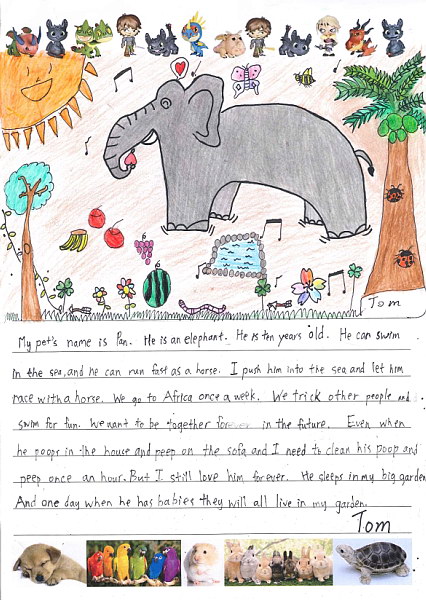 Tom
My pet's name is Pan. He is an elephant. He is ten years old. He can swim
in the sea, and he can run fast as a horse. I push him into the sea and let him
race with a horse. We go to Africa once a week. We trick other people and
swim for fun. We want to be together forever in the future. Even when
he poops in the house and peep on the sofa and I need to clean his poop and
peep once an hour. But I still love him forever. He sleeps in my big garden
And one day when he has babies they will all live in my garden.
Tom